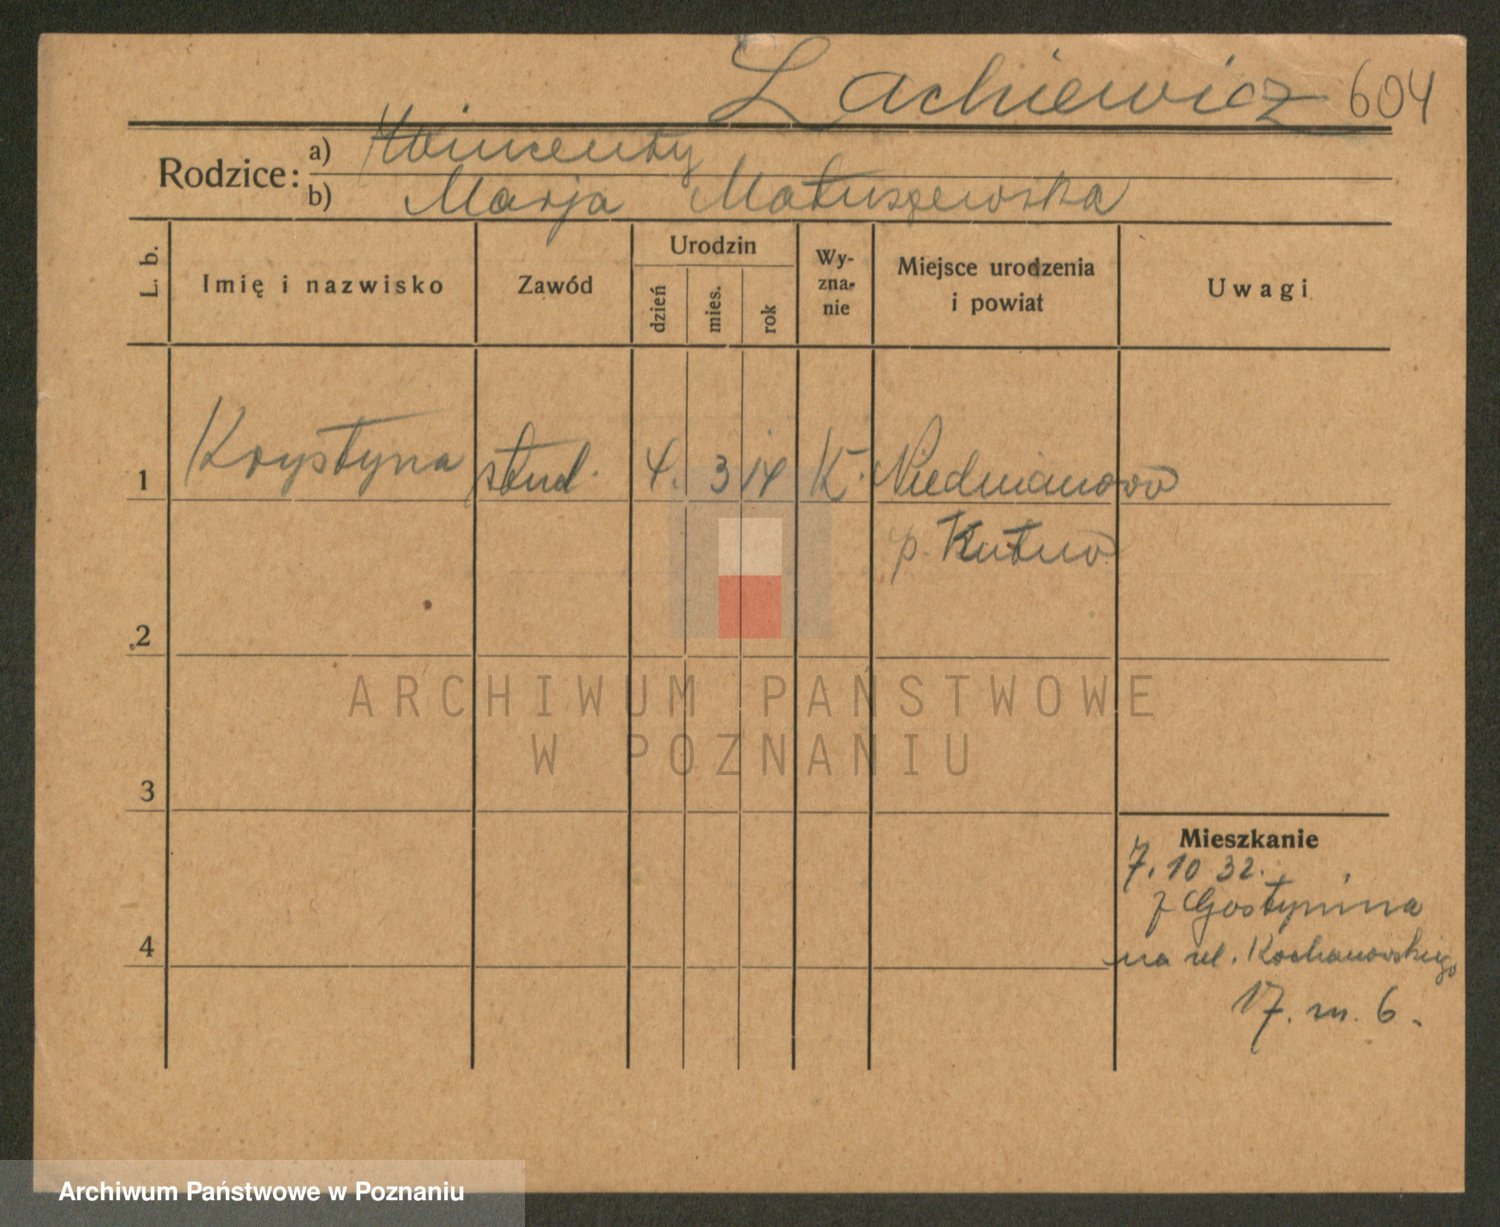 Lachiewicz 604
Rodzice: a) Wincenty
b) Marja Matuszewska
L. b.
Imię i nazwisko
Zawód
Urodzin
dzień
mies.
rok
Wy-
zna-
nie
Miejsce urodzenia
i powiat
Uwagi
1 Krystyna stud. 4. 3 14 K. Niedrzianowo
p. Kutno
2
ARCHIWUM PAŃSTWOWE
W POZNANIU
3
Mieszkanie
7. 10 32.
z Gostynina
4
na ul. Kochanowskiego
17. m. 6.
Archiwum Państwowe w Poznaniu